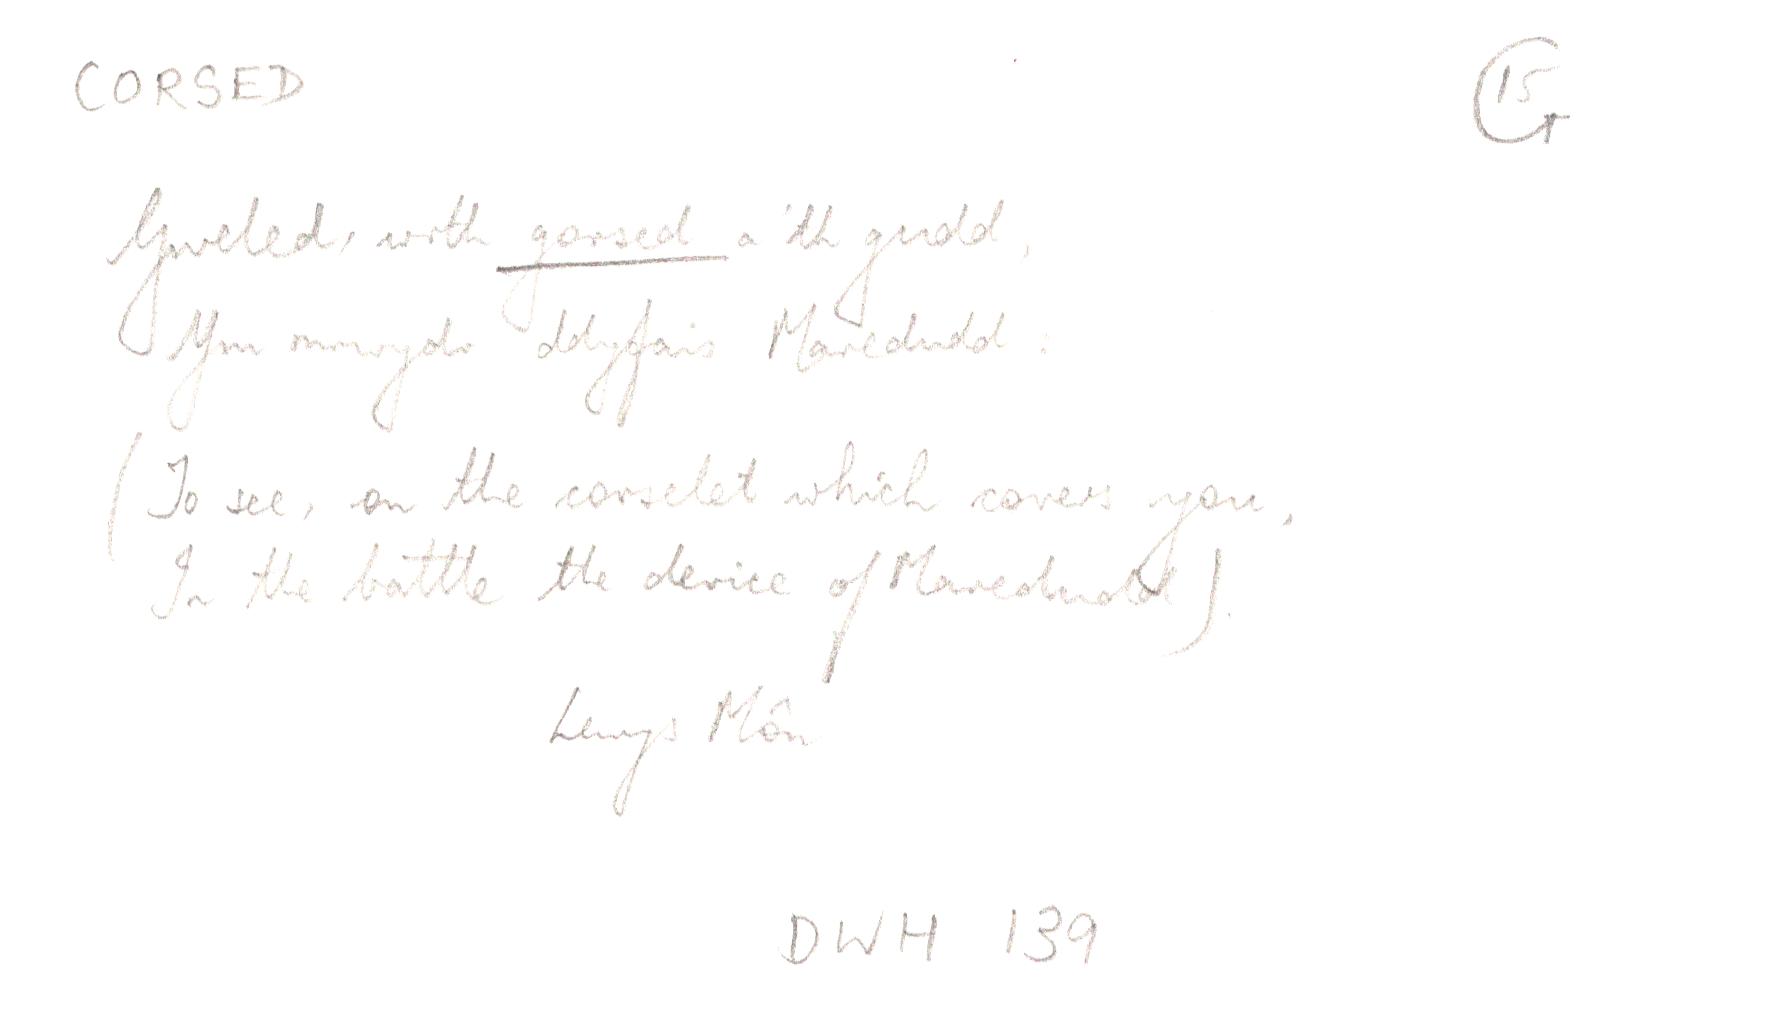 CORSED
15
Gweled, wrth gorsed a'th gudd,
Ymmrwydr ddyfais Maredudd:
(To see, on the corselet which covers you,
In the battle the device of Maredudd).
Lewys Môn
DWH 139